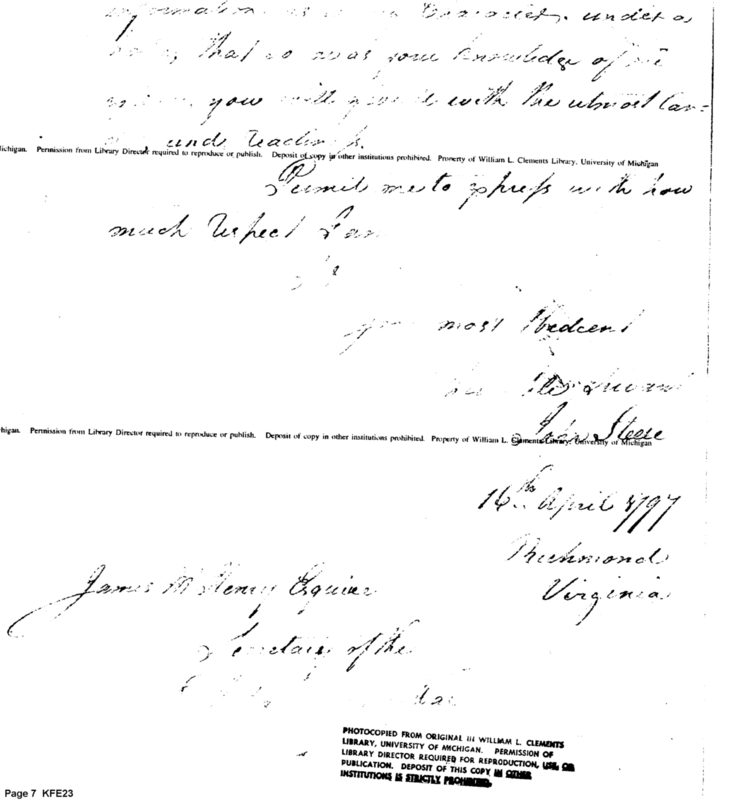 information as under a
that so was your knowledge of me
you will give it with the utmost Can=
and readiness.
ichigan. Permission from Library Director required to reproduce or publish. Deposit of copy in other institutions prohibited. Property of William L. Clements Library, University of Michigan
Permit me to express with how
much respect I am
most Obedient
Servant
higan. Permission from Library Director required to reproduce or publish. Deposit of copy in other institutions prohibited. Property of William L. Clements Library, University of Michigan
John Steele
16th April 1797
Richmond
Virginia
James McHenry Esquire
Secretary of the
PHOTOCOPIED FROM ORIGINAL IN WILLIAM L. CLEMENTS
LIBRARY, UNIVERSITY OF MICHIGAN. PERMISSION OF
LIBRARY DIRECTOR REQUIRED FOR REPRODUCTION, USE, OR
PUBLICATION. DEPOSIT OF THIS COPY IN OTHER
INSTITUTIONS IS STRICTLY PROHIBITED.
Page 7 KFE23